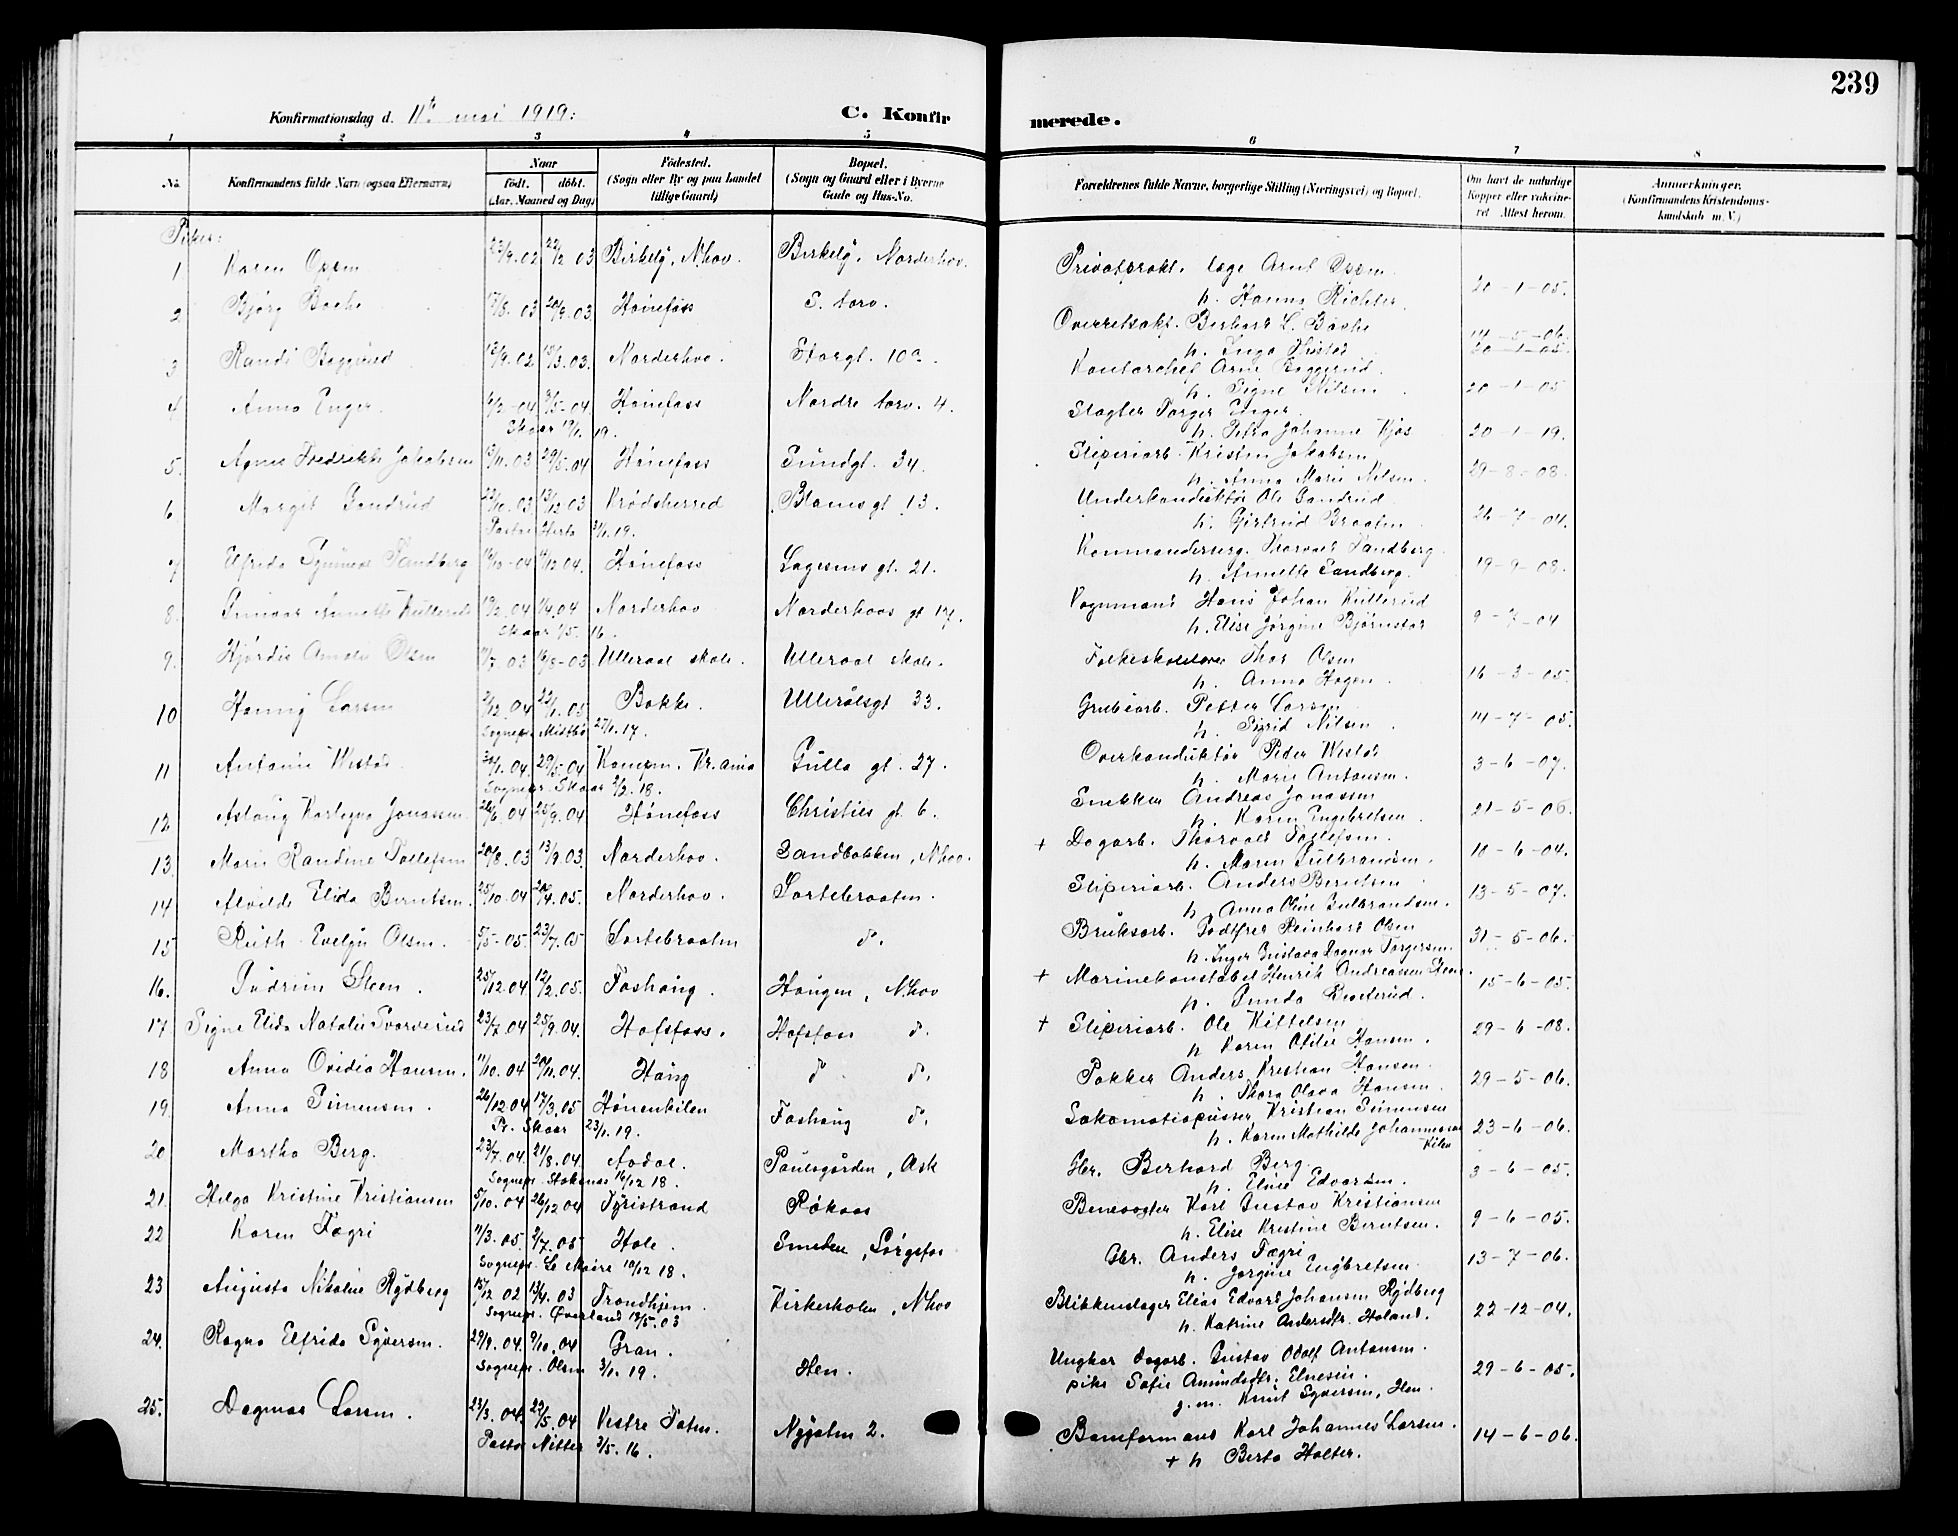 239
Konfirmationsdag d. 11te mai 1919.
C. Konfirmerede.
1 2 3 4 5 6 7 8
No. Konfirmandens fulde Navn (ogsaa Efternavn)
Naar
födt. döbt.
(Aar, Maaned og Dag)
Födested.
(Sogn eller By og paa Landet
tillige Gaard)
Bopæl.
(Sogn og Gaard eller i Byerne
Gade og Hus-No.
Forældrenes fulde Navne, borgerlige Stilling (Næringsvei) og Bopæl.
Om havt de naturlige
Kopper eller vakcine-
ret Attest herom.
Anmerkninger.
(Konfirmandens Kristendoms-
kundskab m. V.)
Piker:
1 Karen Oppen 23/9.02 22/2 03 Birkely, Nhov. Birkely, Norderhov. Privatprakt. læge Arnt Oppen
h. Hanna Richter. 20-1-05.
2 Bjørg Bache 17/8.03 20/9.03. Hønefoss S. torv. Overretssakf. Berhart L. Bache
h. Inga 14-5-06.
3 Randi Boggerud 13/9.02 15/3.03. Norderhov. Storgt. 10a. Kontorchef Arne Boggerud.
h. Signe Nilsen. 20-1-05
4 Anna Enger. 6/2-04 3/5-04 Hønefoss Nordre torv. 4. Slagter Torger Enger.
Skaar 19/1.19. h. Petra Johanne Kjøs 20-1-19.
5. Agnes Fredrikke Jakobsen 13/11.03 29/5.04 Hønefoss Sundgt. 34. Sliperiarb. Kristen Jakobsen
h. Anna Marie Nilsen. 29-8-08.
6 Margit Sandrud 22/10.03 13/12.03 Krødsherred Blomsgt 13. Underkonduktør Ole Sandrud.
Pastor 31/1.19. h. Gjertrud Braaten. 26-7-04.
7 Elfrida Synnøve Sandberg Hønefoss Lagesens gt. 21. Kommandersrg. Thorvald Sandberg.
h. Annette Sandberg. 19-9-08.
8. Annette Kullerud 19/2.04 Norderhov Norderhovs gt 17. Vognmand Hans Johan Kullerud
Skaar 1/5.16. h. Elise Jørgine Bjørnstad 9-7-04
9. Hjørdis Amalie Olsen 11/7.03 16/8-03 Ulleraal skole. Ulleraal skole. Folkeskolelærer Thor Olsen
h. Anna Hagen. 16-3-05.
10 Larsen 2/12.04 22/1.05 Bakke. Ullerålsgt 33. Grubearb. Petter Larsen
Sognepr. 27/1.17. h. Sigrid Nilsen. 14-7-05.
11 Antonie Westad. 30/1.04. 29/5.04 Kampen. Kr.ania Gulla gt. 27. Overkonduktør Peder Westad
Sognepr. Skaar 2/2.18. h. Marie Antonsen. 3-6-07.
12 Aslaug Jonassen. 26/6.04 25/9.04 Hønefoss Christies gt 6. Snekker Andreas Jonassen
h. Karen Engebretsen. 21-5-06.
13. Marie Randine Tollefsen 20/8.03 13/9.03. Norderhov. Sandbakken, Nhov. + Dagarb. Thorvald Tollefsen.
h. Maren Gulbrandsen. 10-6-04.
14 Alvilde Elida Berntsen. 25/10.04 20/4.05. Norderhov. Sortebraaten. Sliperiarb. Anders Berntsen
h. Anna Oline Gulbrandsen. 13-5-07.
15 Ruth Evelyn Olsen. 5/5-05. 23/7.05 Sortebraaten do. Bruksarb. Godtfred Reinhart Olsen
h. Inger Gustava Torgersen. 31-5-06.
16. Gudrun Steen. 25/12.04 12/2.05. Foshaug. Haugen, Nhov + Marinekonstabel Henrik Andreassen Steen.
h. Gunda Braaterud. 15-6-05.
17 Signe Elida Natalie Svarverud 23/7.04 25/9.04. Hofsfoss. Hofsfoss do. + Sliperiarb. Ole Kittelsen
h Karen Otilie Hansen. 29-6-08.
18 Anna Ovidia Hansen. 11/10.04 20/11.04. Haug do. do. Pakker Anders Kristian Hansen.
h. Thora Olava Hansen. 29-5-06.
19. Anna Simensen. 26/12.04 17/3.05 Hønenkilen Foshaug do. Lokomotivpusser Kristian Simensen
Pr. Skaar 23/1.19. h. Karen Mathilde Johannesen Kilen 23-6-06.
20 Martha Berg. 23/7.04. 21/8.04. Aadal. Paulsgården, Ask Gbr. Berhard Berg.
Sognepr. Stokenas 16/12 18. h. Elise Edvardsen. 3-6-05.
21. Helga Kristine Kristiansen 5/10.04 26/12 04 Tyristrand Røkaas Banevogter Karl Gustav Kristiansen
h. Elise Kristine Berntsen. 9-6-05.
22 Karen Fægri 11/3.05. 2/7.05 Hole. Smeden, Sørgefos Gbr. Anders Fægri
Sognepr. Le Maire 10/12 18. h. Jørgine Engbretsen. 13-7-06.
23 Augusta Nikoline Rydberg 15/12 02 13/4.03 Trondhjem. Kirkeskolen, Nhov Blikkenslager Elias Edvard Johansen Rydberg
Sognepr. Øverland 12/5.03 h. Katrine Andersdtr. Høland. 22-12-04.
24. Ragna Elfrida Syversen. 29/9.04. 9/10.04 Gran. Hen. Ungkar dagarb. Gustav Odolf Antonsen.
Sognepr. Olsen 3/1.19. pike Sofie Amundsdtr. Elnesein. 29-6-05.
g.m. Knut Syversen, Hen.
25. Dagmar Larsen. 23/3.04. 22/5.04 Vestre Toten. Nygaten 2. Baneformand Karl Johannes Larsen.
Pastor Nitter 3/5.16. + h Berta Holter. 14-6-06.